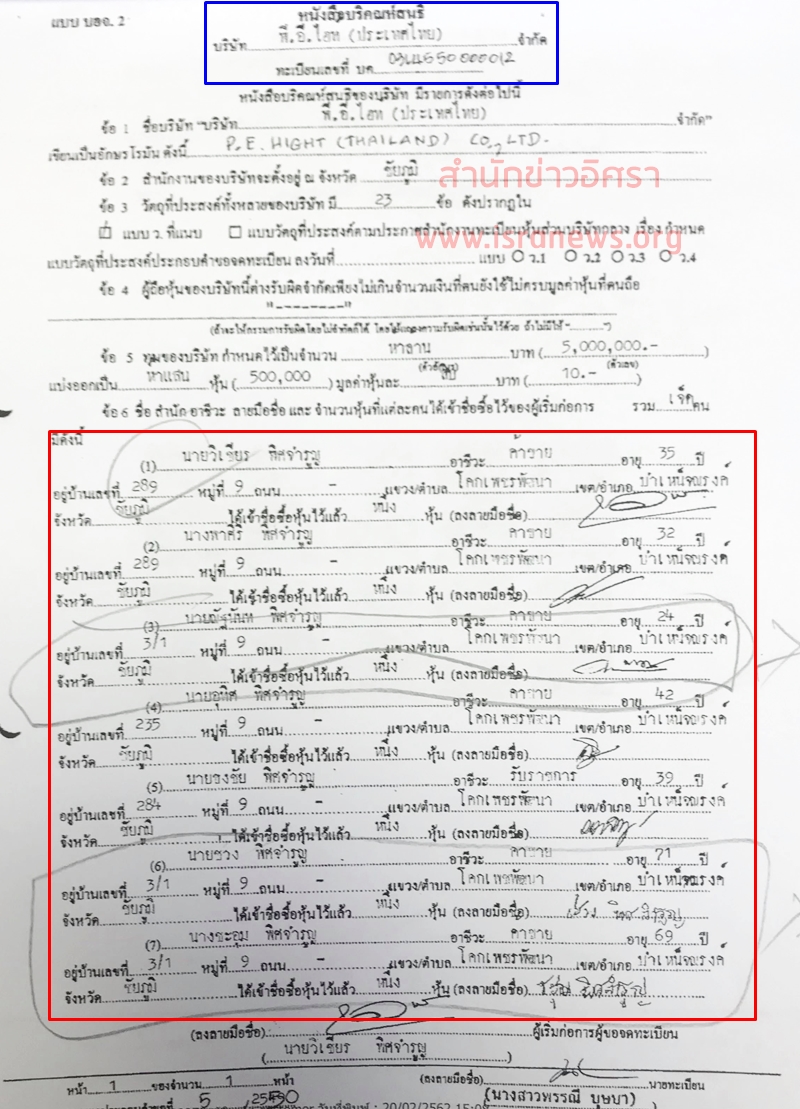 แบบ บอจ. 2
หนังสือบริคณห์สนธิ
บริษัท พี.อี.ไฮท (ประเทศไทย) จำกัด
ทะเบียนเลขที่ บค.
หนังสือบริคณห์สนธิของบริษัท มีรายการดังต่อไปนี้
ข้อ 1 ชื่อบริษัท "บริษัท พี.อี.ไฮท (ประเทศไทย) จำกัด"
เขียนเป็นอักษรโรมัน ดังนี้ P.E. HIGHT (THAILAND) CO., LTD.
ข้อ 2 สำนักงานของบริษัทจะตั้งอยู่ ณ จังหวัด ชัยภูมิ
สำนักข่าวอิศรา
ข้อ 3 วัตถุที่ประสงค์ทั้งหลายของบริษัท มี 23 ข้อ ดังปรากฏใน
แบบ ว. ที่แนบ แบบวัตถุที่ประสงค์ตามประกาศสำนักงานทะเบียนหุ้นส่วนบริษัทกลาง เรื่อง กำหนด
www.isranews.org
แบบวัตถุที่ประสงค์ประกอบคำขอจดทะเบียน ลงวันที่ แบบ ว.1 ว.2 ว.3 ว.4
ข้อ 4 ผู้ถือหุ้นของบริษัทนี้ต่างรับผิดจำกัดเพียงไม่เกินจำนวนเงินที่ตนยังใช้ไม่ครบมูลค่าหุ้นที่ตนถือ
"--------"
(ถ้าจะให้กรรมการรับผิดโดยไม่จำกัดก็ได้ โดยให้แถลงความรับผิดเช่นนั้นไว้ด้วย ถ้าไม่มีให้ "-------")
ข้อ 5 ทุนของบริษัท กำหนดไว้เป็นจำนวน หาลาน บาท (5,000,000.-)
(ตัวอักษร) (ตัวเลข)
แบ่งออกเป็น หาแสน หุ้น (500,000) มูลค่าหุ้นละ สิบ บาท (10.-)
ข้อ 6 ชื่อ สำนัก อาชีวะ ลายมือชื่อ และ จำนวนหุ้นที่แต่ละคนได้เข้าชื่อซื้อไว้ของผู้เริ่มก่อการ รวม เจ็ด คน
มีดังนี้
(1) นายวิเชียร พิศจำรูญ อาชีวะ คาขาย อายุ 35 ปี
อยู่บ้านเลขที่ 289 หมู่ที่ 9 ถนน - แขวง/ตำบล โคกเพชรพัฒนา เขต/อำเภอ บำเหน็จณรงค์
จังหวัด ชัยภูมิ ได้เข้าชื่อซื้อหุ้นไว้แล้ว หนึ่ง หุ้น (ลงลายมือชื่อ)
(2) นางพาศิริ พิศจำรูญ อาชีวะ คาขาย อายุ 32 ปี
อยู่บ้านเลขที่ 289 หมู่ที่ 9 ถนน - แขวง/ตำบล โคกเพชรพัฒนา เขต/อำเภอ บำเหน็จณรงค์
จังหวัด ชัยภูมิ ได้เข้าชื่อซื้อหุ้นไว้แล้ว หนึ่ง หุ้น (ลงลายมือชื่อ)
(3) นายณัฐนันท พิศจำรูญ อาชีวะ คาขาย อายุ 24 ปี
อยู่บ้านเลขที่ 3/1 หมู่ที่ 9 ถนน - แขวง/ตำบล โคกเพชรพัฒนา เขต/อำเภอ บำเหน็จณรงค์
จังหวัด ชัยภูมิ ได้เข้าชื่อซื้อหุ้นไว้แล้ว หนึ่ง หุ้น (ลงลายมือชื่อ)
(4) นายอุทิศ พิศจำรูญ อาชีวะ คาขาย อายุ 42 ปี
อยู่บ้านเลขที่ 235 หมู่ที่ 9 ถนน - แขวง/ตำบล โคกเพชรพัฒนา เขต/อำเภอ บำเหน็จณรงค์
จังหวัด ชัยภูมิ ได้เข้าชื่อซื้อหุ้นไว้แล้ว หนึ่ง หุ้น (ลงลายมือชื่อ)
(5) นายธงชัย พิศจำรูญ อาชีวะ รับราชการ อายุ 39 ปี
อยู่บ้านเลขที่ 284 หมู่ที่ 9 ถนน - แขวง/ตำบล โคกเพชรพัฒนา เขต/อำเภอ บำเหน็จณรงค์
จังหวัด ชัยภูมิ ได้เข้าชื่อซื้อหุ้นไว้แล้ว หนึ่ง หุ้น (ลงลายมือชื่อ)
(6) นายชวง พิศจำรูญ อาชีวะ คาขาย อายุ 71 ปี
อยู่บ้านเลขที่ 3/1 หมู่ที่ 9 ถนน - แขวง/ตำบล โคกเพชรพัฒนา เขต/อำเภอ บำเหน็จณรงค์
จังหวัด ชัยภูมิ ได้เข้าชื่อซื้อหุ้นไว้แล้ว หนึ่ง หุ้น (ลงลายมือชื่อ)
(7) นางชะอุม พิศจำรูญ อาชีวะ คาขาย อายุ 69 ปี
อยู่บ้านเลขที่ 3/1 หมู่ที่ 9 ถนน - แขวง/ตำบล โคกเพชรพัฒนา เขต/อำเภอ บำเหน็จณรงค์
จังหวัด ชัยภูมิ ได้เข้าชื่อซื้อหุ้นไว้แล้ว หนึ่ง หุ้น (ลงลายมือชื่อ)
(ลงลายมือชื่อ) ผู้เริ่มก่อการผู้ขอจดทะเบียน
(นายวิเชียร พิศจำรูญ)
หน้า 1 ของจำนวน 1 หน้า (ลงลายมือชื่อ) นายทะเบียน
(นางสาวพรรณี บุษบา)
5
20/02/2562